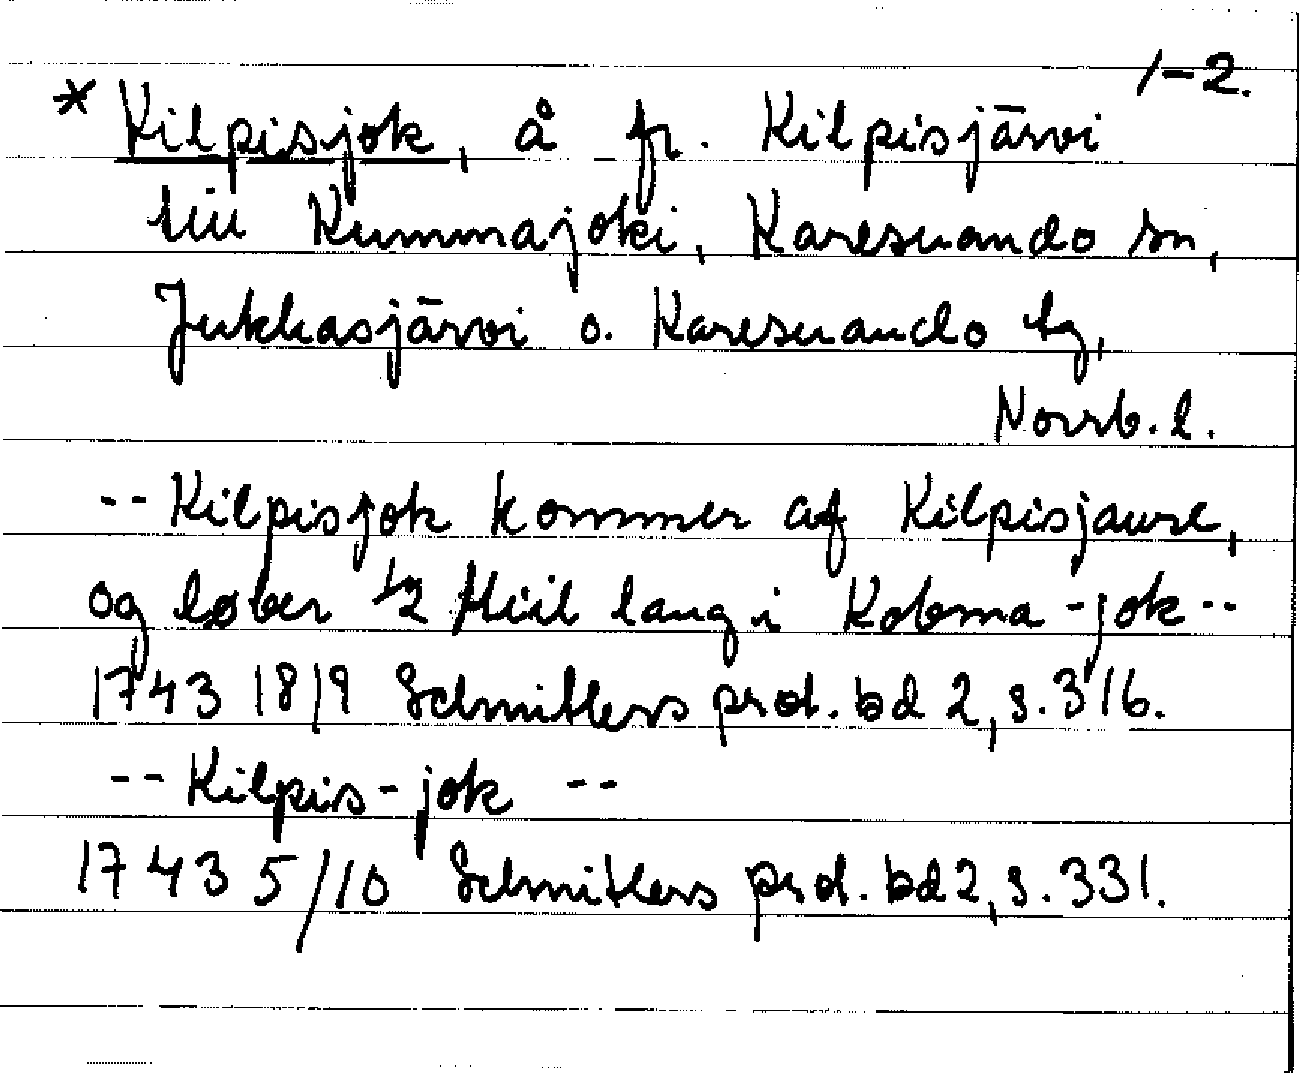 1-2.
* Kilpisjok, å fr. Kilpisjärvi
till Kummajoki, Karesuando sn,
Jukkasjärvi o. Karesuando tg,
Norrb. l.
-- Kilpisjok kommer af Kilpisjaure,
og løber 1/2 Miil lang i Kobma-jok --
1743 18/9 Schnitlers prot. bd 2, s. 316.
-- Kilpis-jok --
1743 5/10 Schnitlers prot. bd 2, s. 331.